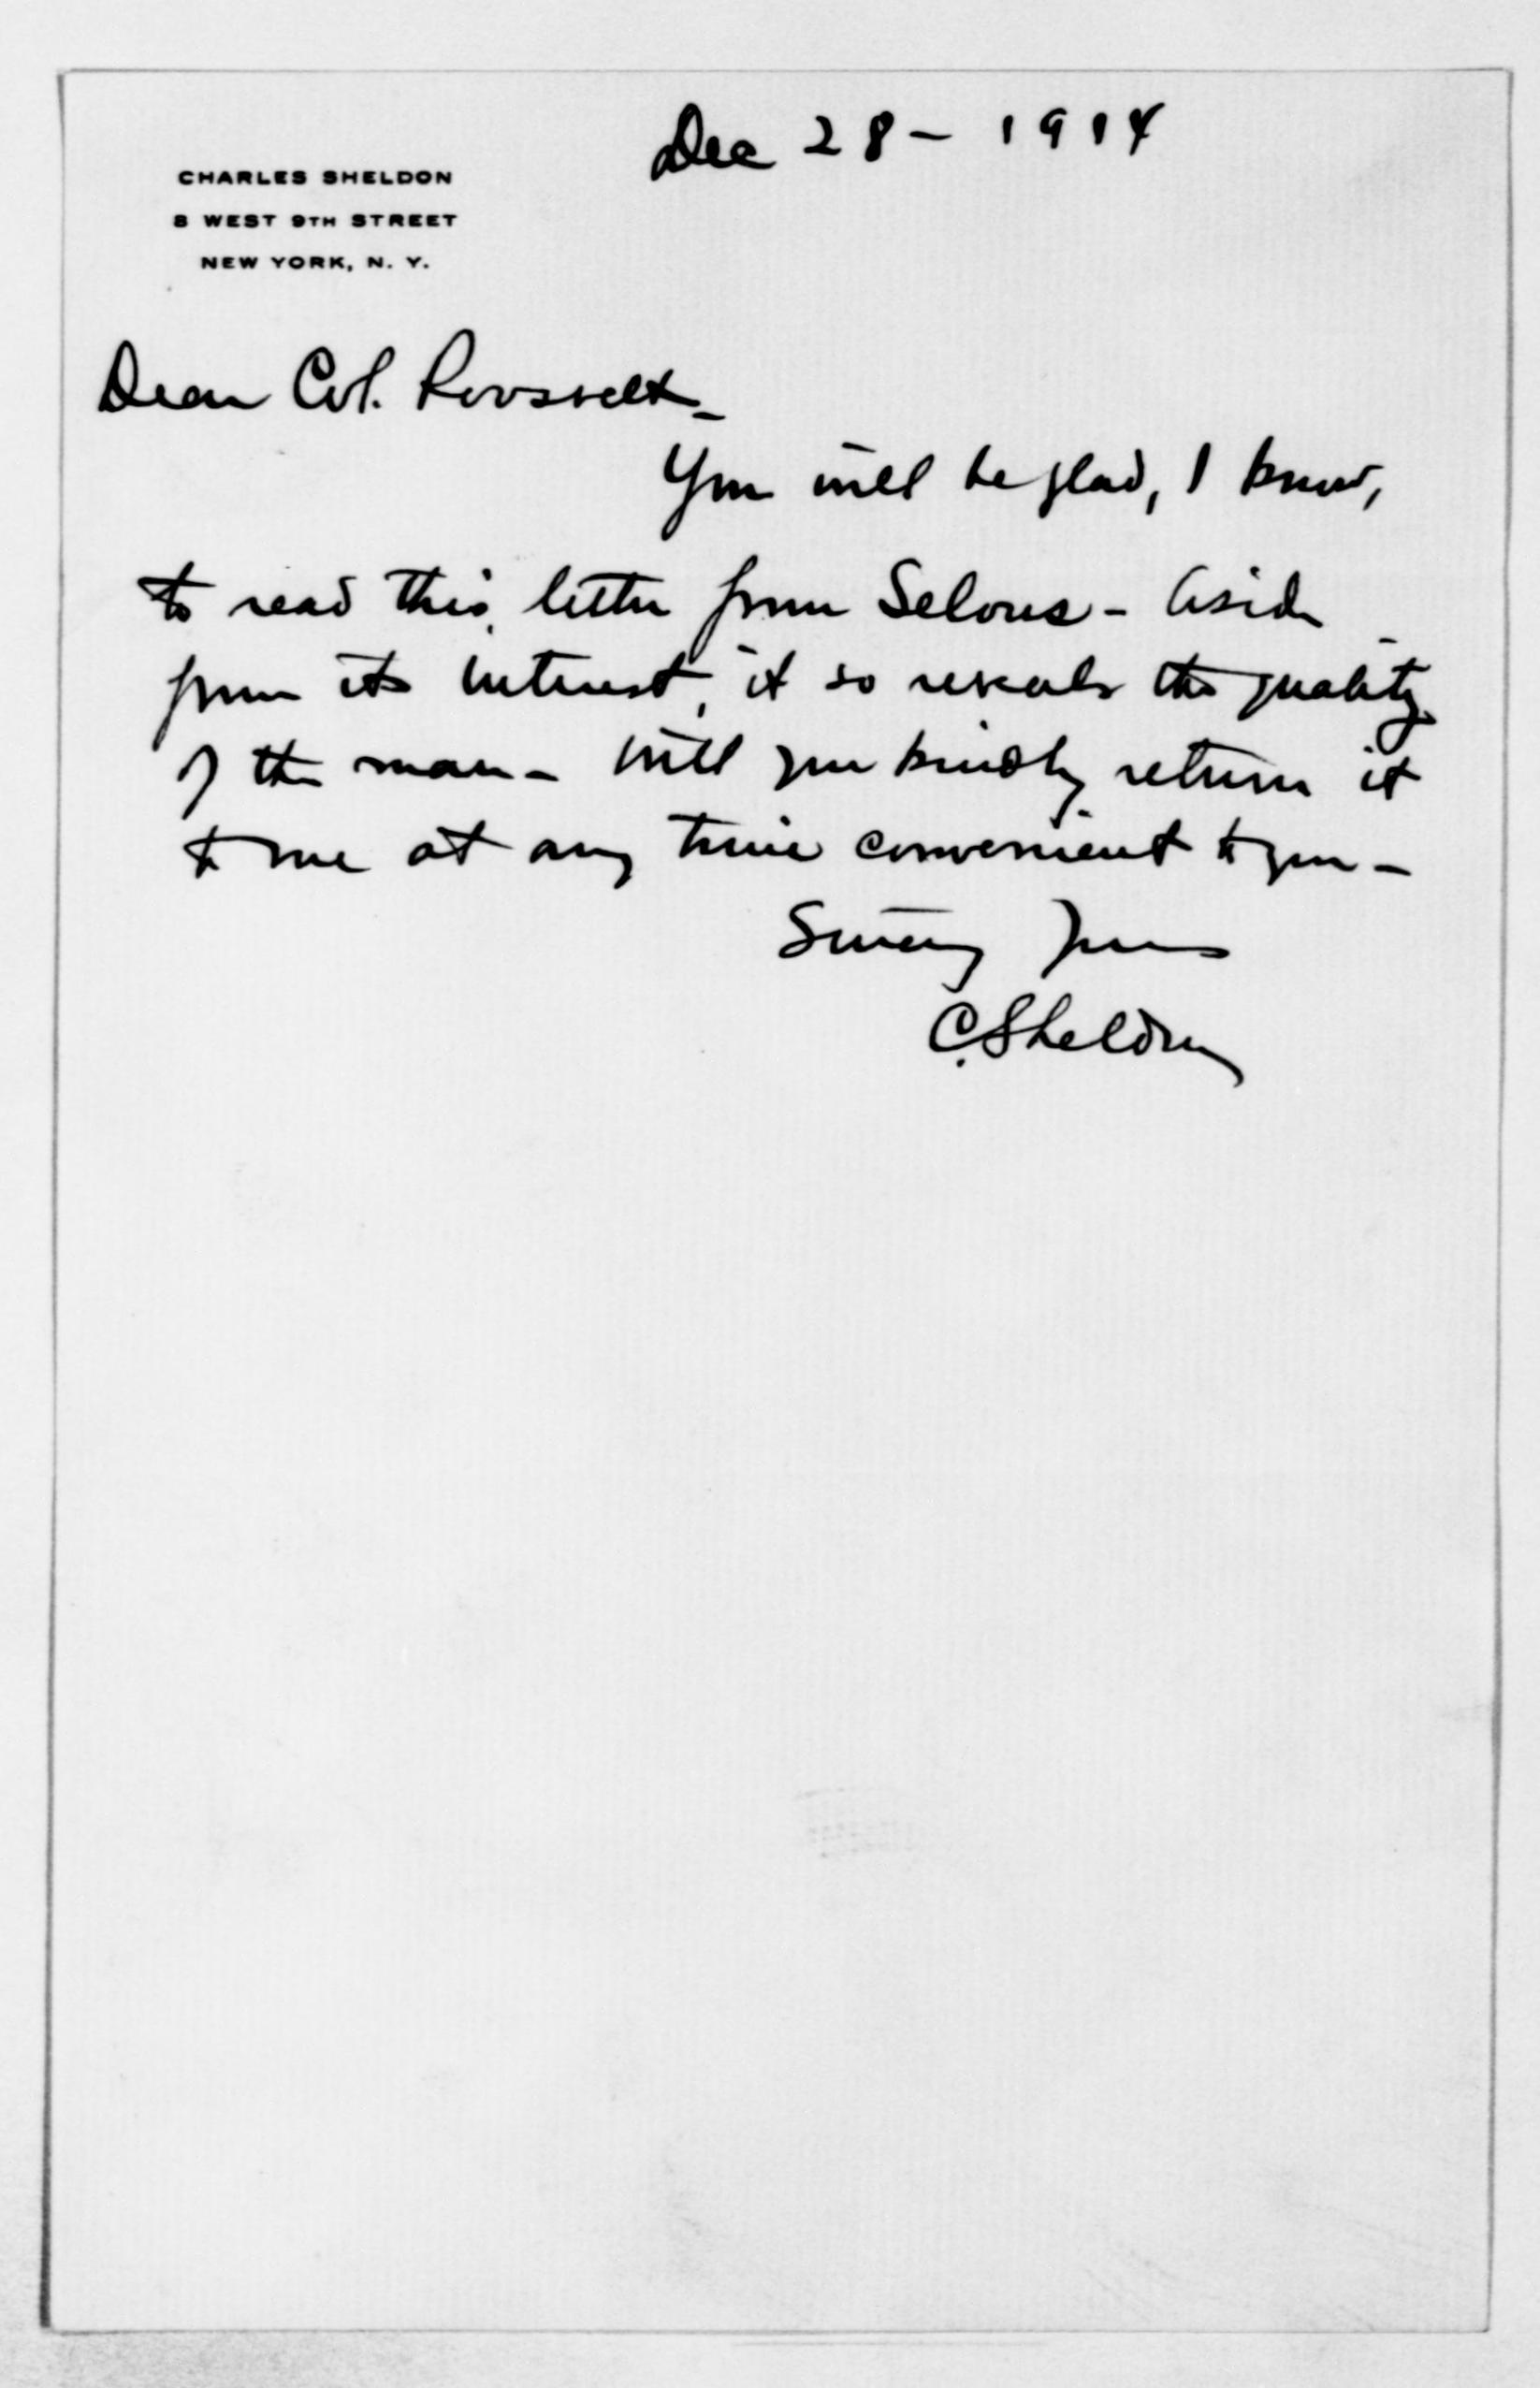 Dec 28 - 1914
CHARLES SHELDON
8 WEST 9TH STREET
NEW YORK, N. Y.
Dear Col. Roosevelt -
You will be glad, I know,
to read this letter from Selous - Aside
from its interest, it so reveals the quality
of the man - Will you kindly return it
to me at any time convenient to you -
Sincerely Yours
C. Sheldon